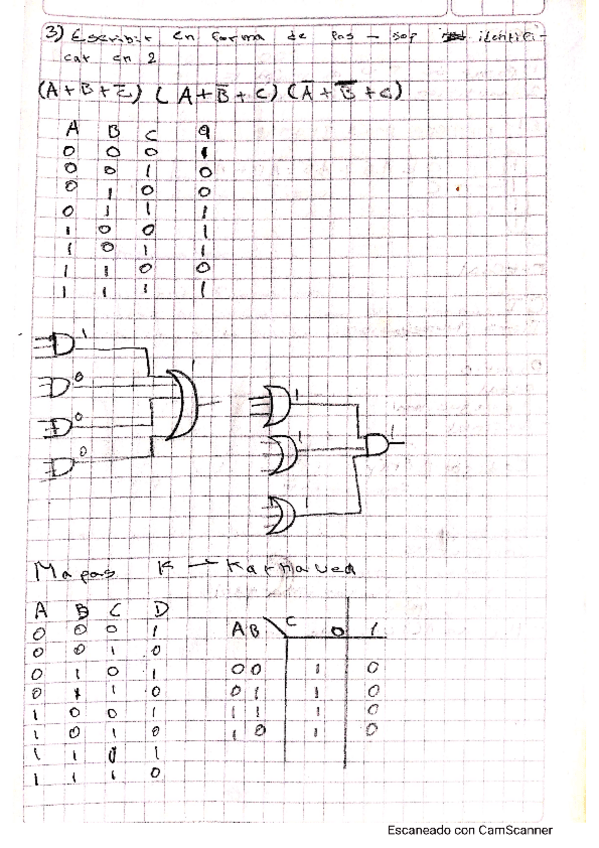 3) Escribir en forma de Pos - sop identifi-
car en 2
(A+B+C̅) (A+B̅+C) (A̅+B̅+C)
A B C Q
0 0 0 1
0 0 1 0
0 1 0 0
0 1 1 1
1 0 0 1
1 0 1 1
1 1 0 0
1 1 1 1
1
0
0
0
1
1
1
1
1
Mapas K → Karnaued
A B C D
0 0 0 1
0 0 1 0
0 1 0 1
0 1 1 0
1 0 0 1
1 0 1 0
1 1 0 1
1 1 1 0
AB C 0 1
00 1 0
01 1 0
11 1 0
10 1 0
Escaneado con CamScanner